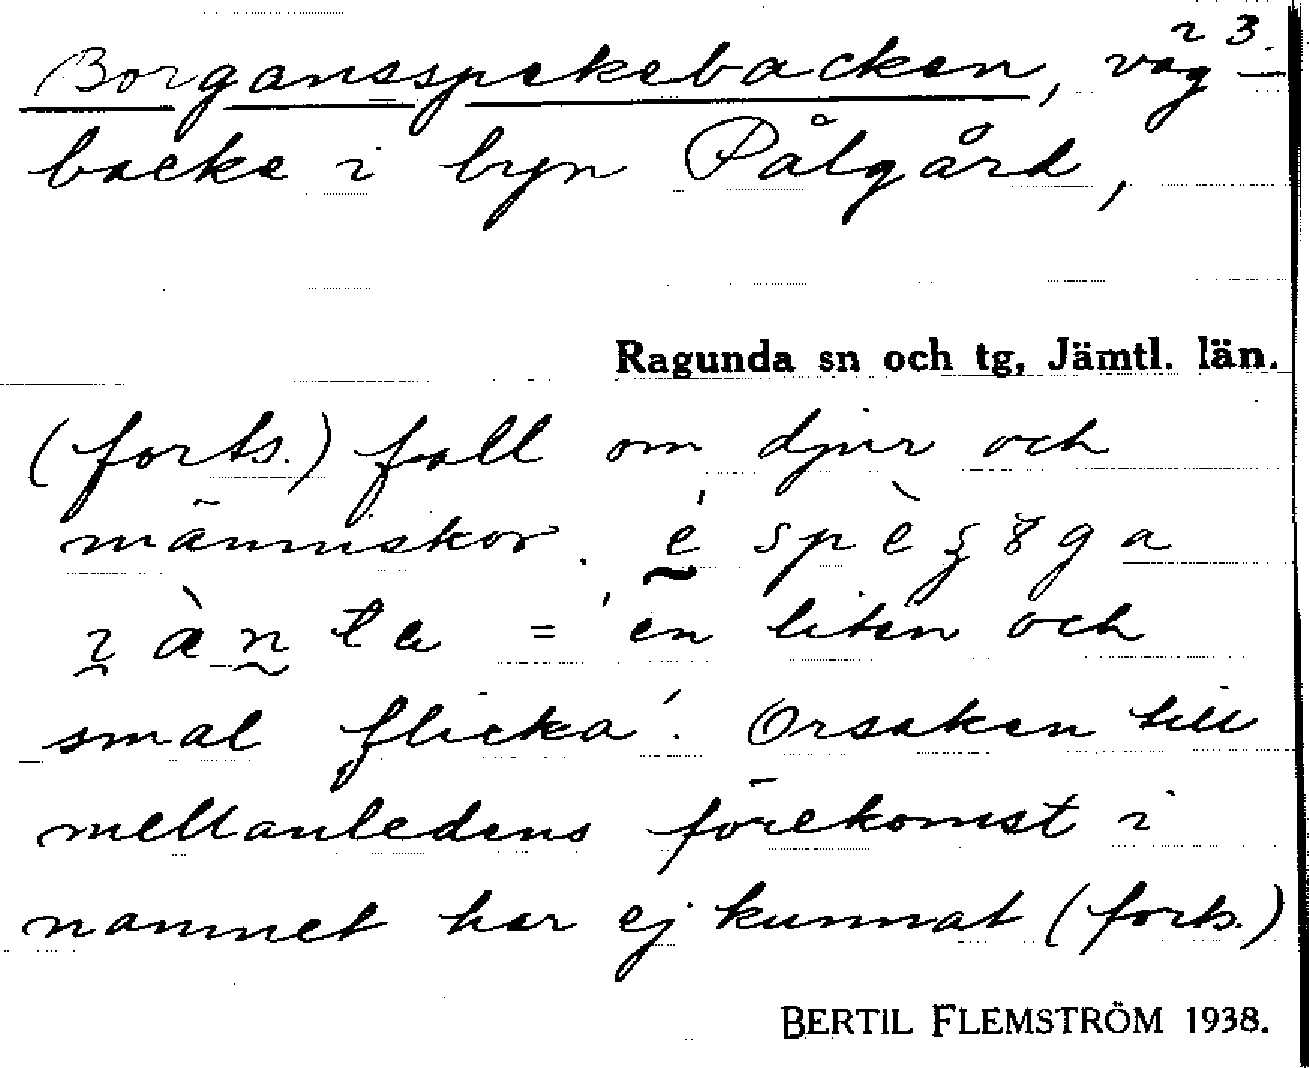 3.
Borgansspekebacken, väg-
backe i byn Pålgård,
Ragunda sn och tg, Jämtl. län.
(forts.) fall om djur och
människor.
= 'en liten och
smal flicka'. Orsaken till
mellanledens förekomst i
namnet har ej kunnat (forts.)
BERTIL FLEMSTRÖM 1938.